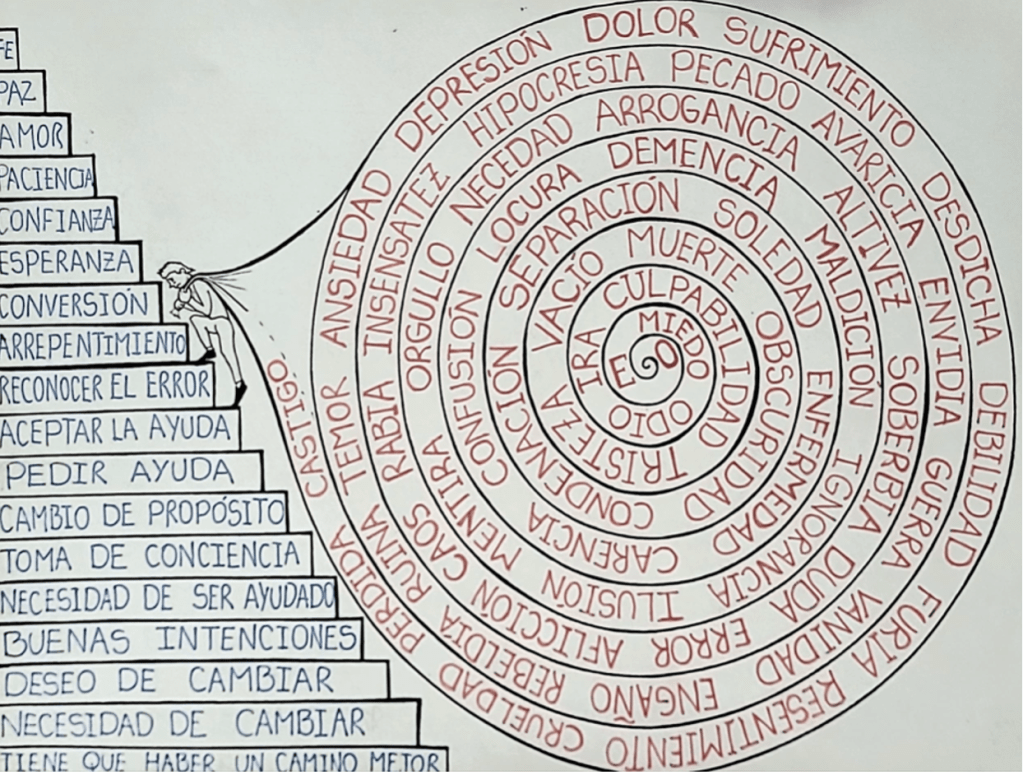 FE
PAZ
AMOR
PACIENCIA
CONFIANZA
ESPERANZA
CONVERSIÓN
ARREPENTIMIENTO
RECONOCER EL ERROR
ACEPTAR LA AYUDA
PEDIR AYUDA
CAMBIO DE PROPÓSITO
TOMA DE CONCIENCIA
NECESIDAD DE SER AYUDADO
BUENAS INTENCIONES
DESEO DE CAMBIAR
NECESIDAD DE CAMBIAR
TIENE QUE HABER UN CAMINO MEJOR
EGO
MIEDO ODIO IRA
CULPABILIDAD TRISTEZA VACÍO
MUERTE OBSCURIDAD CONDENACIÓN
SEPARACIÓN SOLEDAD ENFERMEDAD CARENCIA CONFUSIÓN
LOCURA DEMENCIA MALDICIÓN IGNORANCIA ILUSIÓN MENTIRA ORGULLO
NECEDAD ARROGANCIA ALTIVEZ SOBERBIA DUDA ERROR AFLICCION CAOS RABIA INSENSATEZ
HIPOCRESIA PECADO AVARICIA ENVIDIA GUERRA VANIDAD ENGAÑO REBELDIA RUINA TEMOR ANSIEDAD
DEPRESIÓN DOLOR SUFRIMIENTO DESDICHA DEBILIDAD FURIA RESENTIMIENTO CRUELDAD PERDIDA CASTIGO